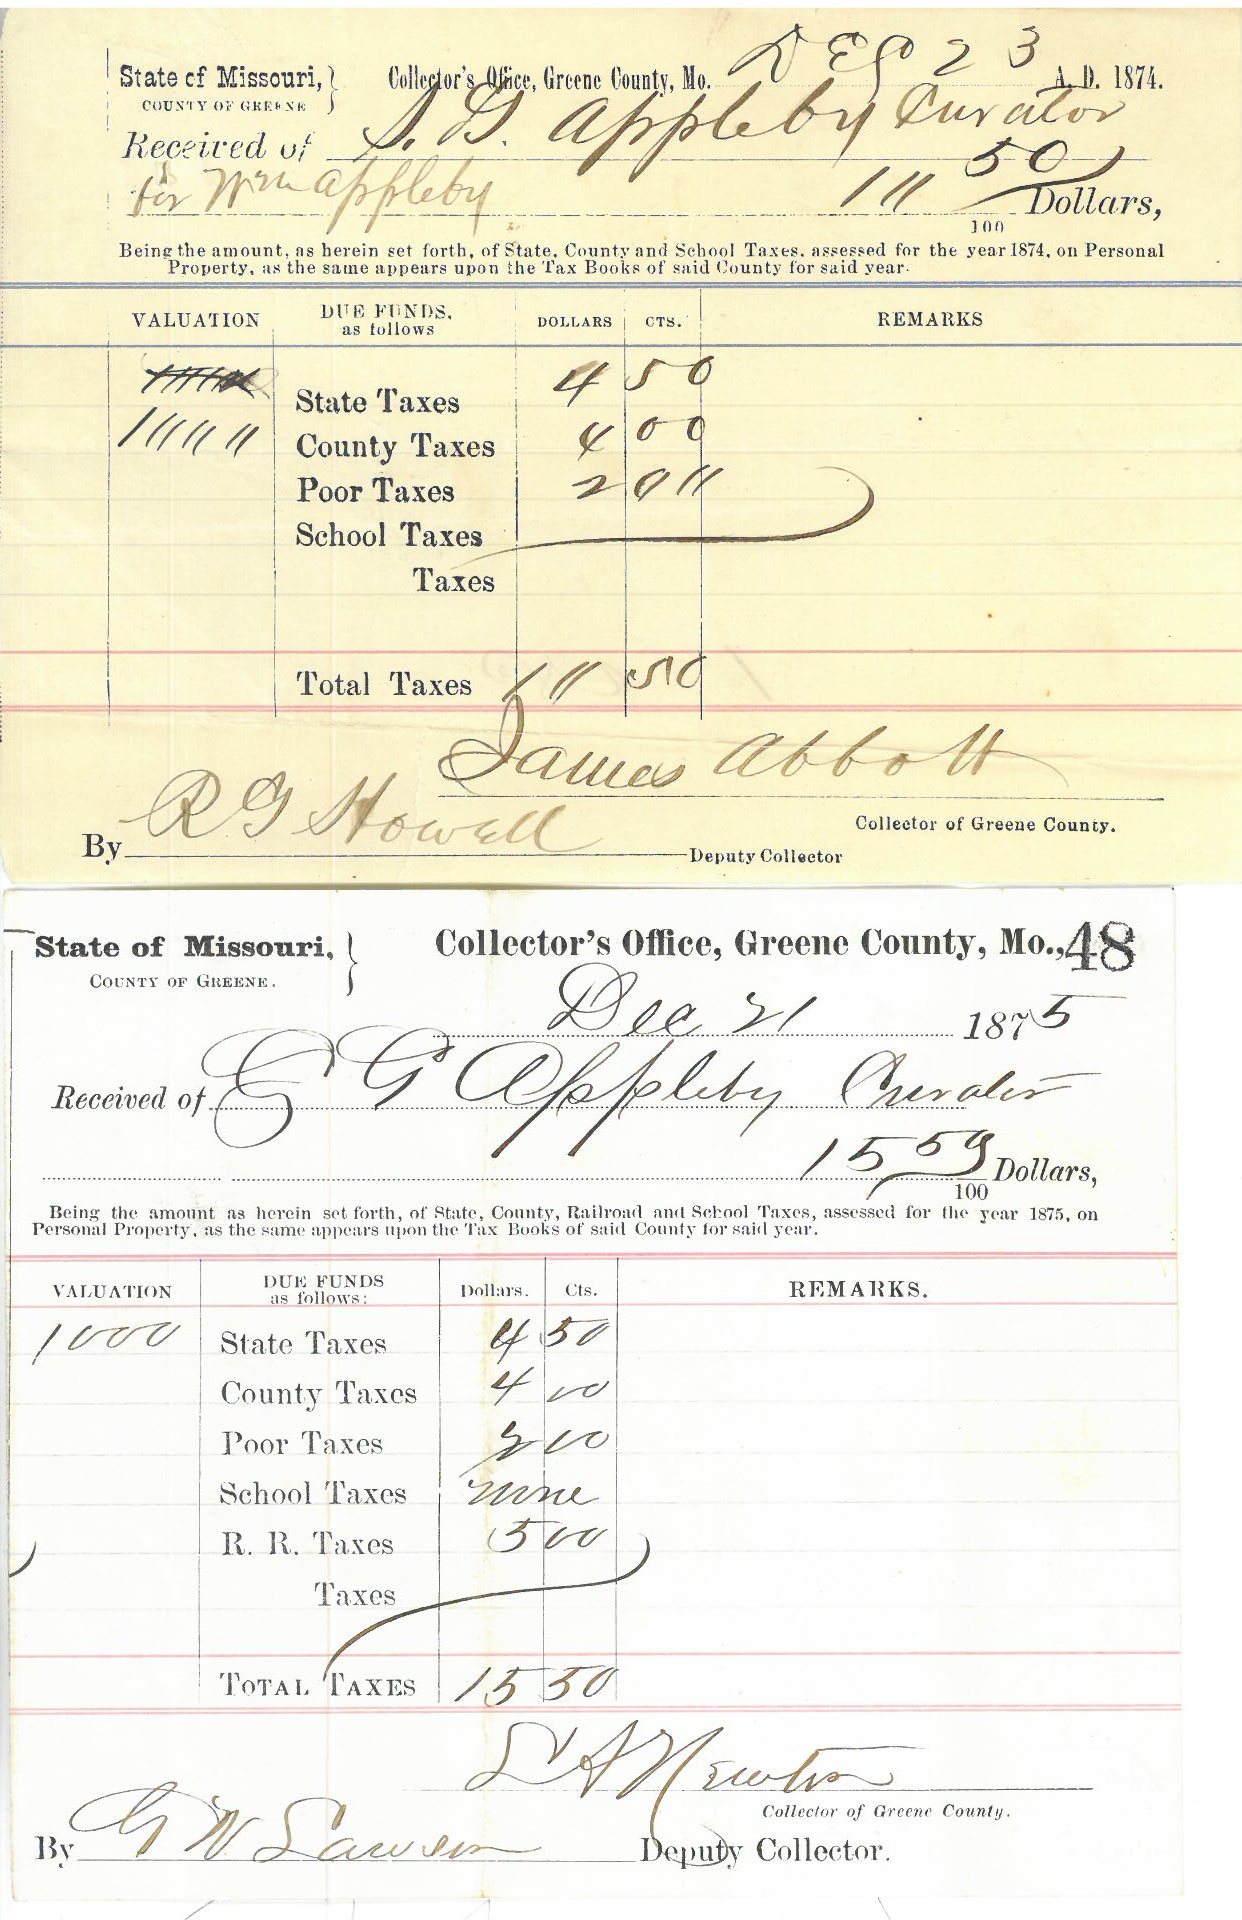 State of Missouri, } Collector's Office, Greene County, Mo. Dec 23 A. D. 1874.
COUNTY OF GREENE
Received of S. G. Appleby Curator
for Wm Appleby 1 11 50/100 Dollars,
Being the amount, as herein set forth, of State, County and School Taxes, assessed for the year 1874, on Personal
Property, as the same appears upon the Tax Books of said County for said year.
VALUATION DUE FUNDS, as follows DOLLARS CTS. REMARKS
State Taxes 4 50
County Taxes 4 00
Poor Taxes 2 0 11
School Taxes
Taxes
Total Taxes 1 11 50
James Abbott
Collector of Greene County.
By R G Howell Deputy Collector
State of Missouri, } Collector's Office, Greene County, Mo., 48
COUNTY OF GREENE.
Dec 21 1875
Received of S G Appleby Curator
15 50/100 Dollars,
Being the amount as herein set forth, of State, County, Railroad and School Taxes, assessed for the year 1875, on
Personal Property, as the same appears upon the Tax Books of said County for said year.
VALUATION DUE FUNDS as follows: Dollars. Cts. REMARKS.
1000 State Taxes 4 50
County Taxes 4 00
Poor Taxes 2 00
School Taxes none
R. R. Taxes 5 00
Taxes
TOTAL TAXES 15 50
S A Newton
Collector of Greene County.
By G W Lawson Deputy Collector.